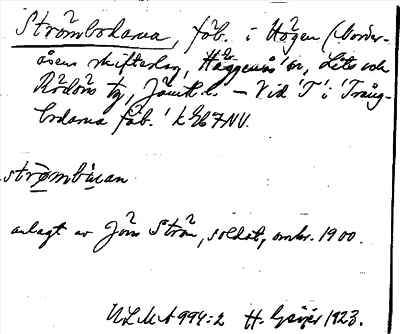 Strömbodarna, fäb. i Högen (Norder-
åsens skifteslag, Häggenås' sn, Lits och
Rödöns tg, Jämtl. l. — Vid 'T' i 'Trång-
bodarna fäb.' k 367 NV.
strømbùan
anlagt av Jöns Ström, soldat, omkr. 1900.
ULMA 994:2 H. Geijer 1923.